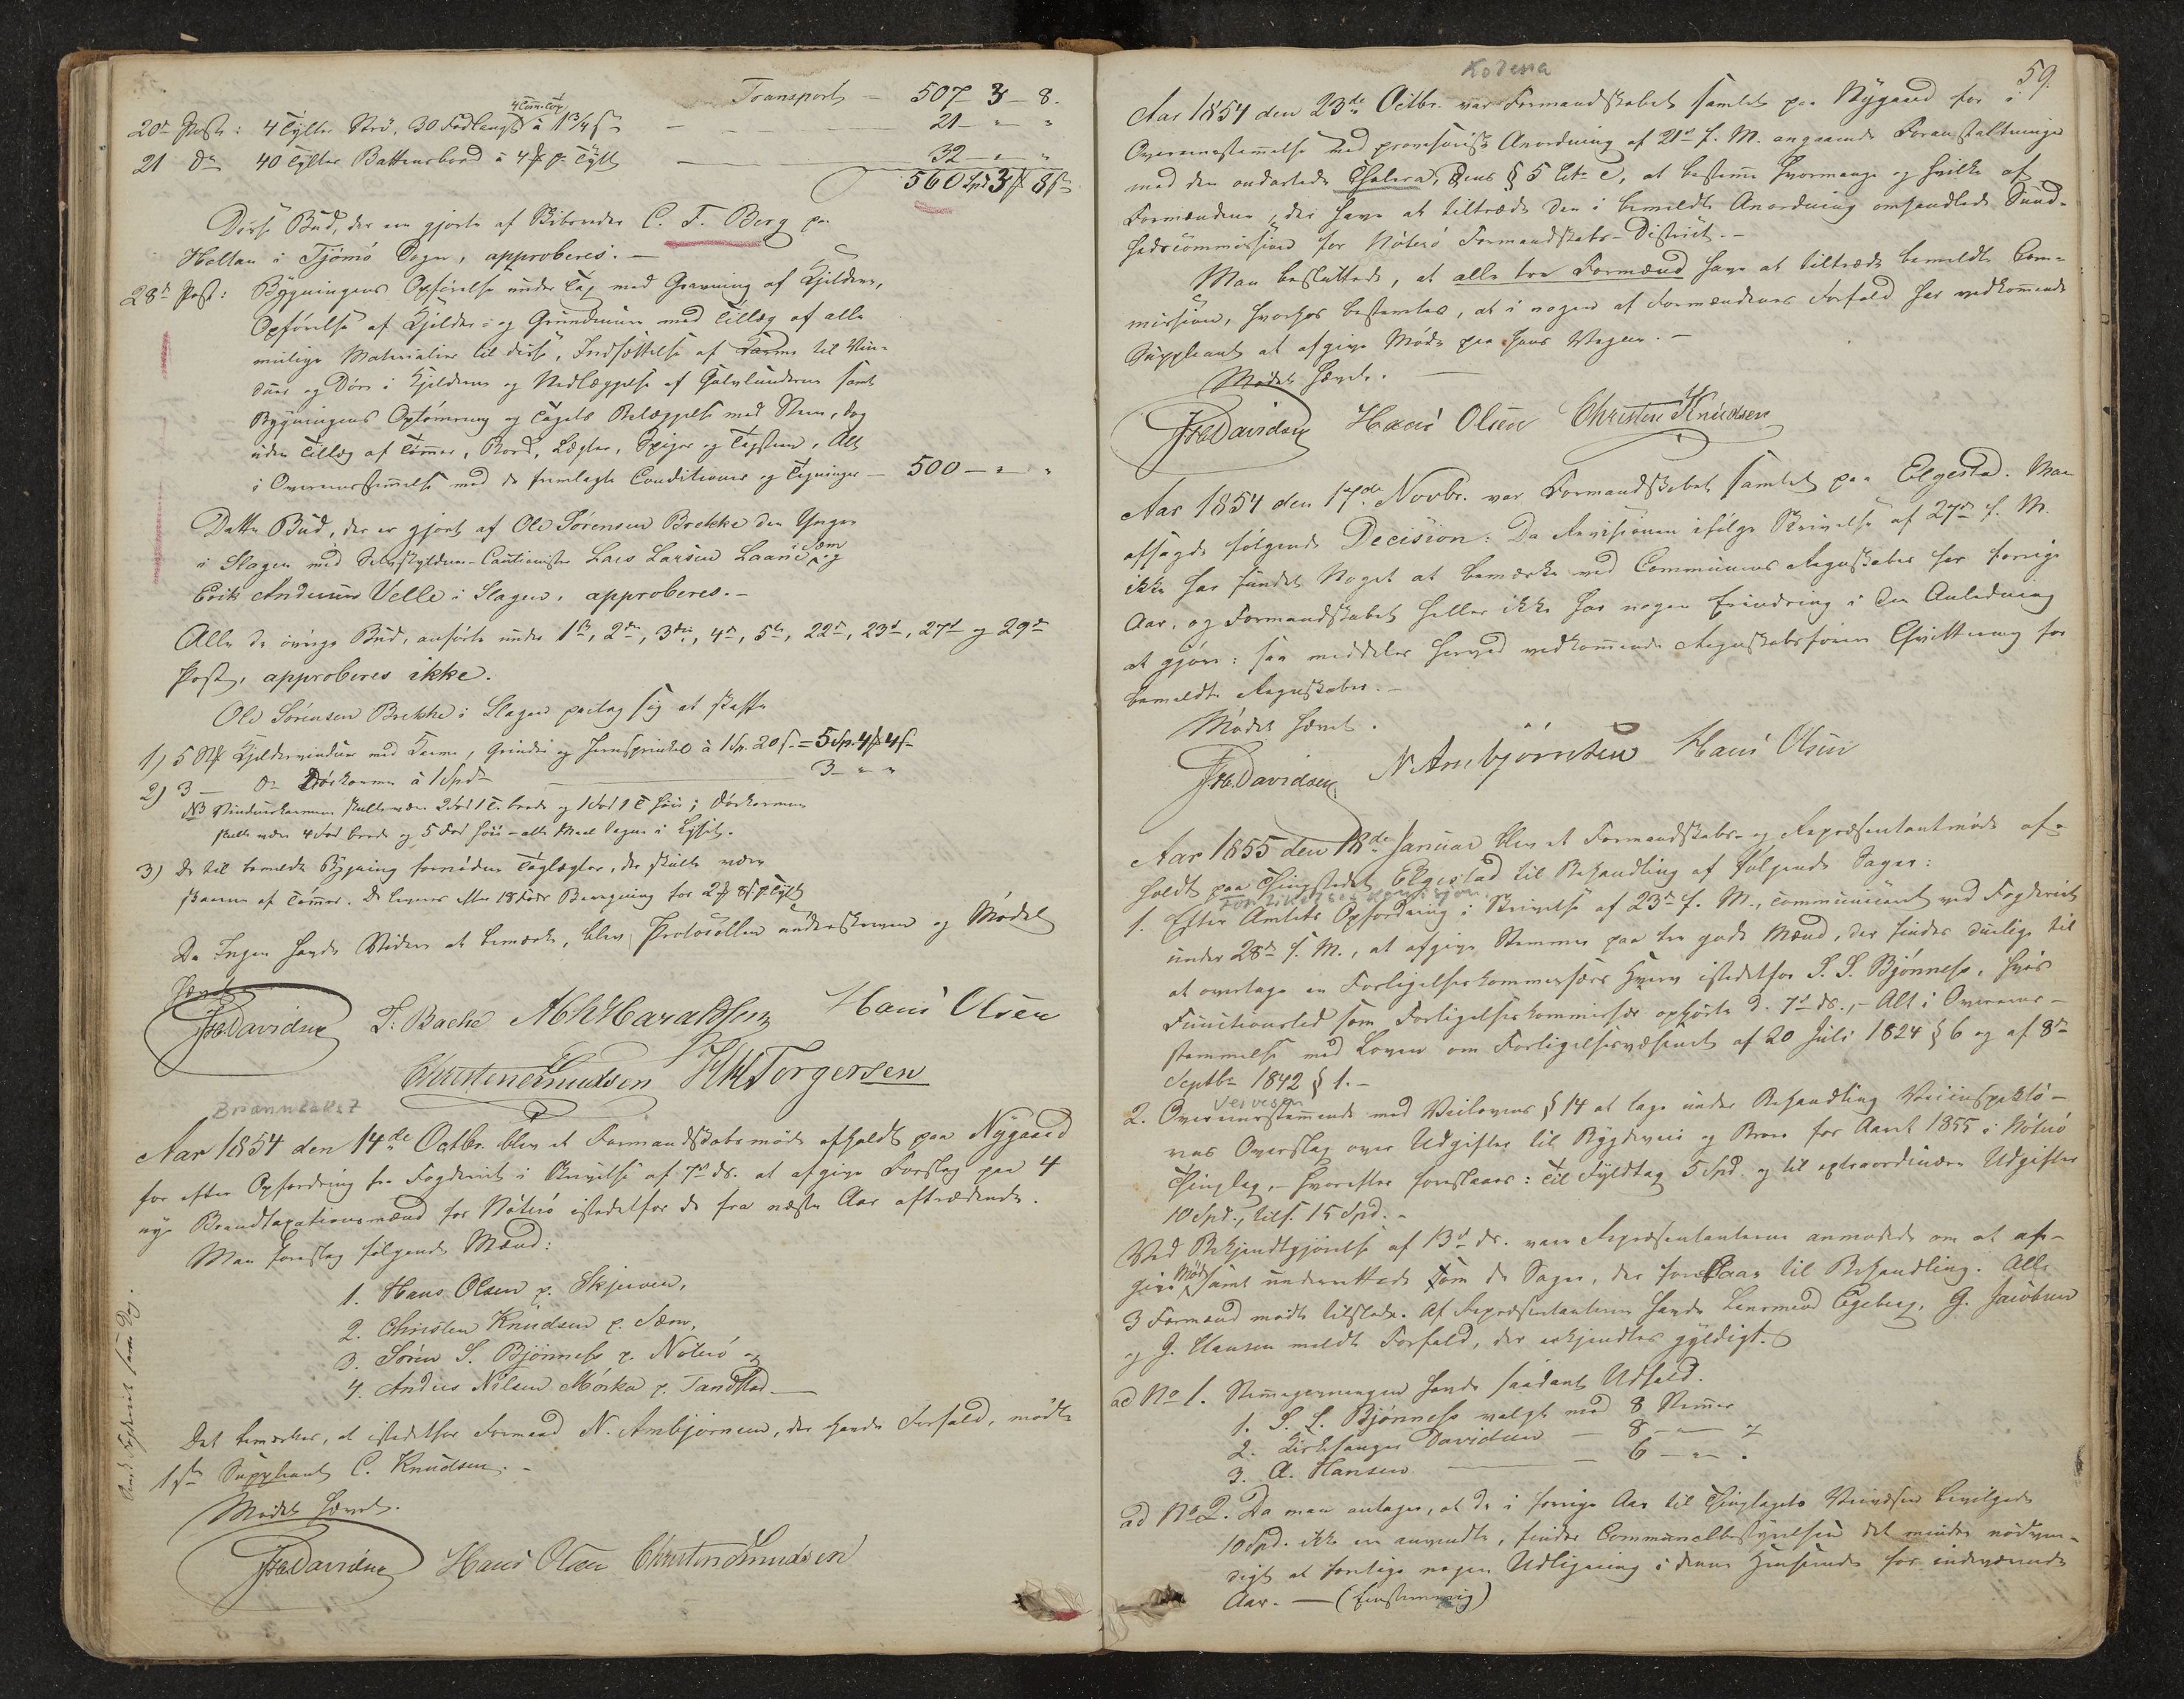 Transport — 507 - 3 - 8.
20de Post: 4 Tylter Strø, 30 Fod lange à 1 3/4 — 21 - " - "
21 do 40 Tylter Battensbord à 4 pr. Tylt — 32 - " - "
560 Spd 3 8
Disse Bud, der ere gjorte af C. F. Berg paa
Holtan i Tjømø Sogn, approberes. —
28de Post: Bygningens Opførelse under Tag med Gravning af Kjelderen,
Opførelse af Kjelder- og Grundmure med Tillæg af alle
mulige Materialier til disse, Indsættelse af Karme til Vin-
duer og Døre i Kjelderen og Nedlæggelse af Gulvlunderne samt
Bygningens Optømring og Tagets Belæggelse med Steen, dog
uden Tillæg af Tømmer, Bord, Lægter, Spiger og Tagsteen, Alt
i Overensstemmelse med de fremlagte Conditioner og Tegninger — 500 - " - "
Dette Bud, der er gjort af Ole Sørensen Brekke den Yngre
i Slagen med Selvskyldner-Cautionister Lars Larsen i Sem og
Erik Andersen Velle i Slagen, approberes. —
Alle de øvrige Bud, anførte under 1ste, 2den, 3die, 4de, 5te, 22de, 23de, 27de og 29de
Post, approberes ikke.
Ole Sørensen Brekke i Slagen paatog sig at skaffe
1) 5 Stk Kjeldervinduer med Karme, Grinder og Jernsprinkel à 1 Sp. 20 s. = 5 Sp. 4 4 s
2) 3 — do Dørkarme à 1 Spd — 3 - " - "
NB Vindueskarmene skulle være 2 Fod 1 T. brede og 1 Fod 1 T høie; Dørkarmene
skulle være 4 Fod brede og 5 Fod høie — alle Maal tagne i Lyset.
3) De til bemeldte Bygning fornødne Taglægter, der skulle være
skaarne af Tømmer. De leveres efter 18 Fods Beregning for 2 8 s. pr. Tylt
Da Ingen havde Videre at bemærke, blev Protocollen underskreven og Mødet
hævet.
FrDavidsen T. Bache Hans Olsen
Christen Knudsen Torgersen
Branntakst
Aar 1854 den 14de Octbr. blev et Formandskabsmøde afholdt paa Nygaard
for efter Opfordring fra Fogderiet i Skrivelse af 7de ds. at afgive Forslag paa 4
nye Brandtaxationsmænd for Nøterø istedetfor de fra næste Aar aftrædende.
Man foreslog følgende Mænd:
1. Hans Olsen p. Skjerven,
2. Christen Knudsen p. Sem,
3. Søren S. Bjønness p. Nøterø og
4. Anders Nilsen Mørka p. Tandstad —
Det bemærkes, at istedetfor Formand N. Ambjørnsen, der havde Forfald, mødte
1ste Suppleant C. Knudsen. —
Mødet hævet.
FrDavidsen Hans Olsen Christen Knudsen
Kolera
59.
Aar 1854 den 23de Octbr. var Formandskabet samlet paa Nygaard for i
Overensstemmelse med provisorisk Anordning af 21de f. M. angaaende Foranstaltninger
mod den ondartede Cholera, dens § 5 Litr. e, at bestemme hvormange og hvilke af
Formændene, der have at tiltræde den i bemeldte Anordning omhandlede Sund-
hedscommission for Nøterø Formandskabs-District. —
Man besluttede, at alle tre Formænd have at tiltræde bemeldte Com-
mission, hvorhos bestemtes, at i nogen af Formændenes Forfald har vedkommende
Suppleant at afgive Møde paa hans Vegne. —
Mødet hævet. —
FrDavidsen Hans Olsen Christen Knudsen
Aar 1854 den 17de Novbr. var Formandskabet samlet paa Elgestad. Man
afsagde følgende Decision: Da Revisionen ifølge Skrivelse af 27de f. M.
ikke har fundet Noget at bemærke ved Communens Regnskaber for forrige
Aar, og Formandskabet heller ikke har nogen Erindring i den Anledning
at gjøre: saa meddeles herved vedkommende Regnskabsførere Qvittering for
bemeldte Regnskaber. —
Mødet hævet.
FrDavidsen N Ambjørnsen Hans Olsen
Aar 1855 den 18de Januar blev et Formandskabs- og Repræsentantmøde af-
holdt paa Thingstedet Elgestad til Behandling af følgende Sager:
1. Efter Amtets Opfordring i Skrivelse af 23de f. M., communiceret ved Fogderiet
under 28de f. M., at afgive Stemmer paa tre gode Mænd, der findes duelige til
at overtage en Forligelseskommissærs Hverv istedetfor S. S. Bjønness, hvis
Functionstid som Forligelseskommissær ophørte d. 7de ds., — Alt i Overens-
stemmelse med Loven om Forligelsesvæsenet af 20 Juli 1824 § 6 og af 8de
Septbr 1842 § 1. —
Veivesen
2. Overensstemmende med Veilovens § 14 at tage under Behandling Veiinspektø-
rens Overslag over Udgifter til Bygdeveie og Broer for Aaret 1855 i Nøterø
Thinglag, — hvorefter foreslaaes: til Fyldtag 5 Spd. og til extraordinære Udgifter
10 Spd., tils. 15 Spd. —
Ved Bekjendtgjørelse af 13de ds. vare Repræsentanterne anmodede om at af-
give Møde samt underrettede om de Sager, der forestaar til Behandling. Alle
3 Formænd mødte tilstede. Af Repræsentanterne havde Lensmand Egeberg, G. Jacobsen
og G. Hansen meldt Forfald, der erkjendtes gyldigt.
ad No 1. Stemmegivningen havde saadant Udfald.
1. S. S. Bjønness valgt med 8 Stemmer
2. Kirkesanger Davidsen — 8 — " — og
3. A. Hansen — 6 — " — .
ad No 2. Da man antager, at de i forrige Aar til Thinglagets Veivæsen bevilgede
10 Spd. ikke ere anvendte, finder Communalbestyrelsen det mindre nødven-
digt at foretage nogen Udligning i denne Henseende for indeværende
Aar. — (Eenstemmig)